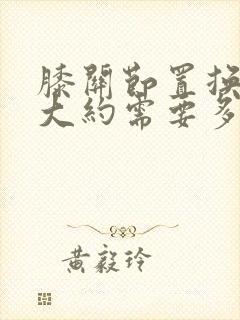 膝關節置換
大約需要多
黃毅玲